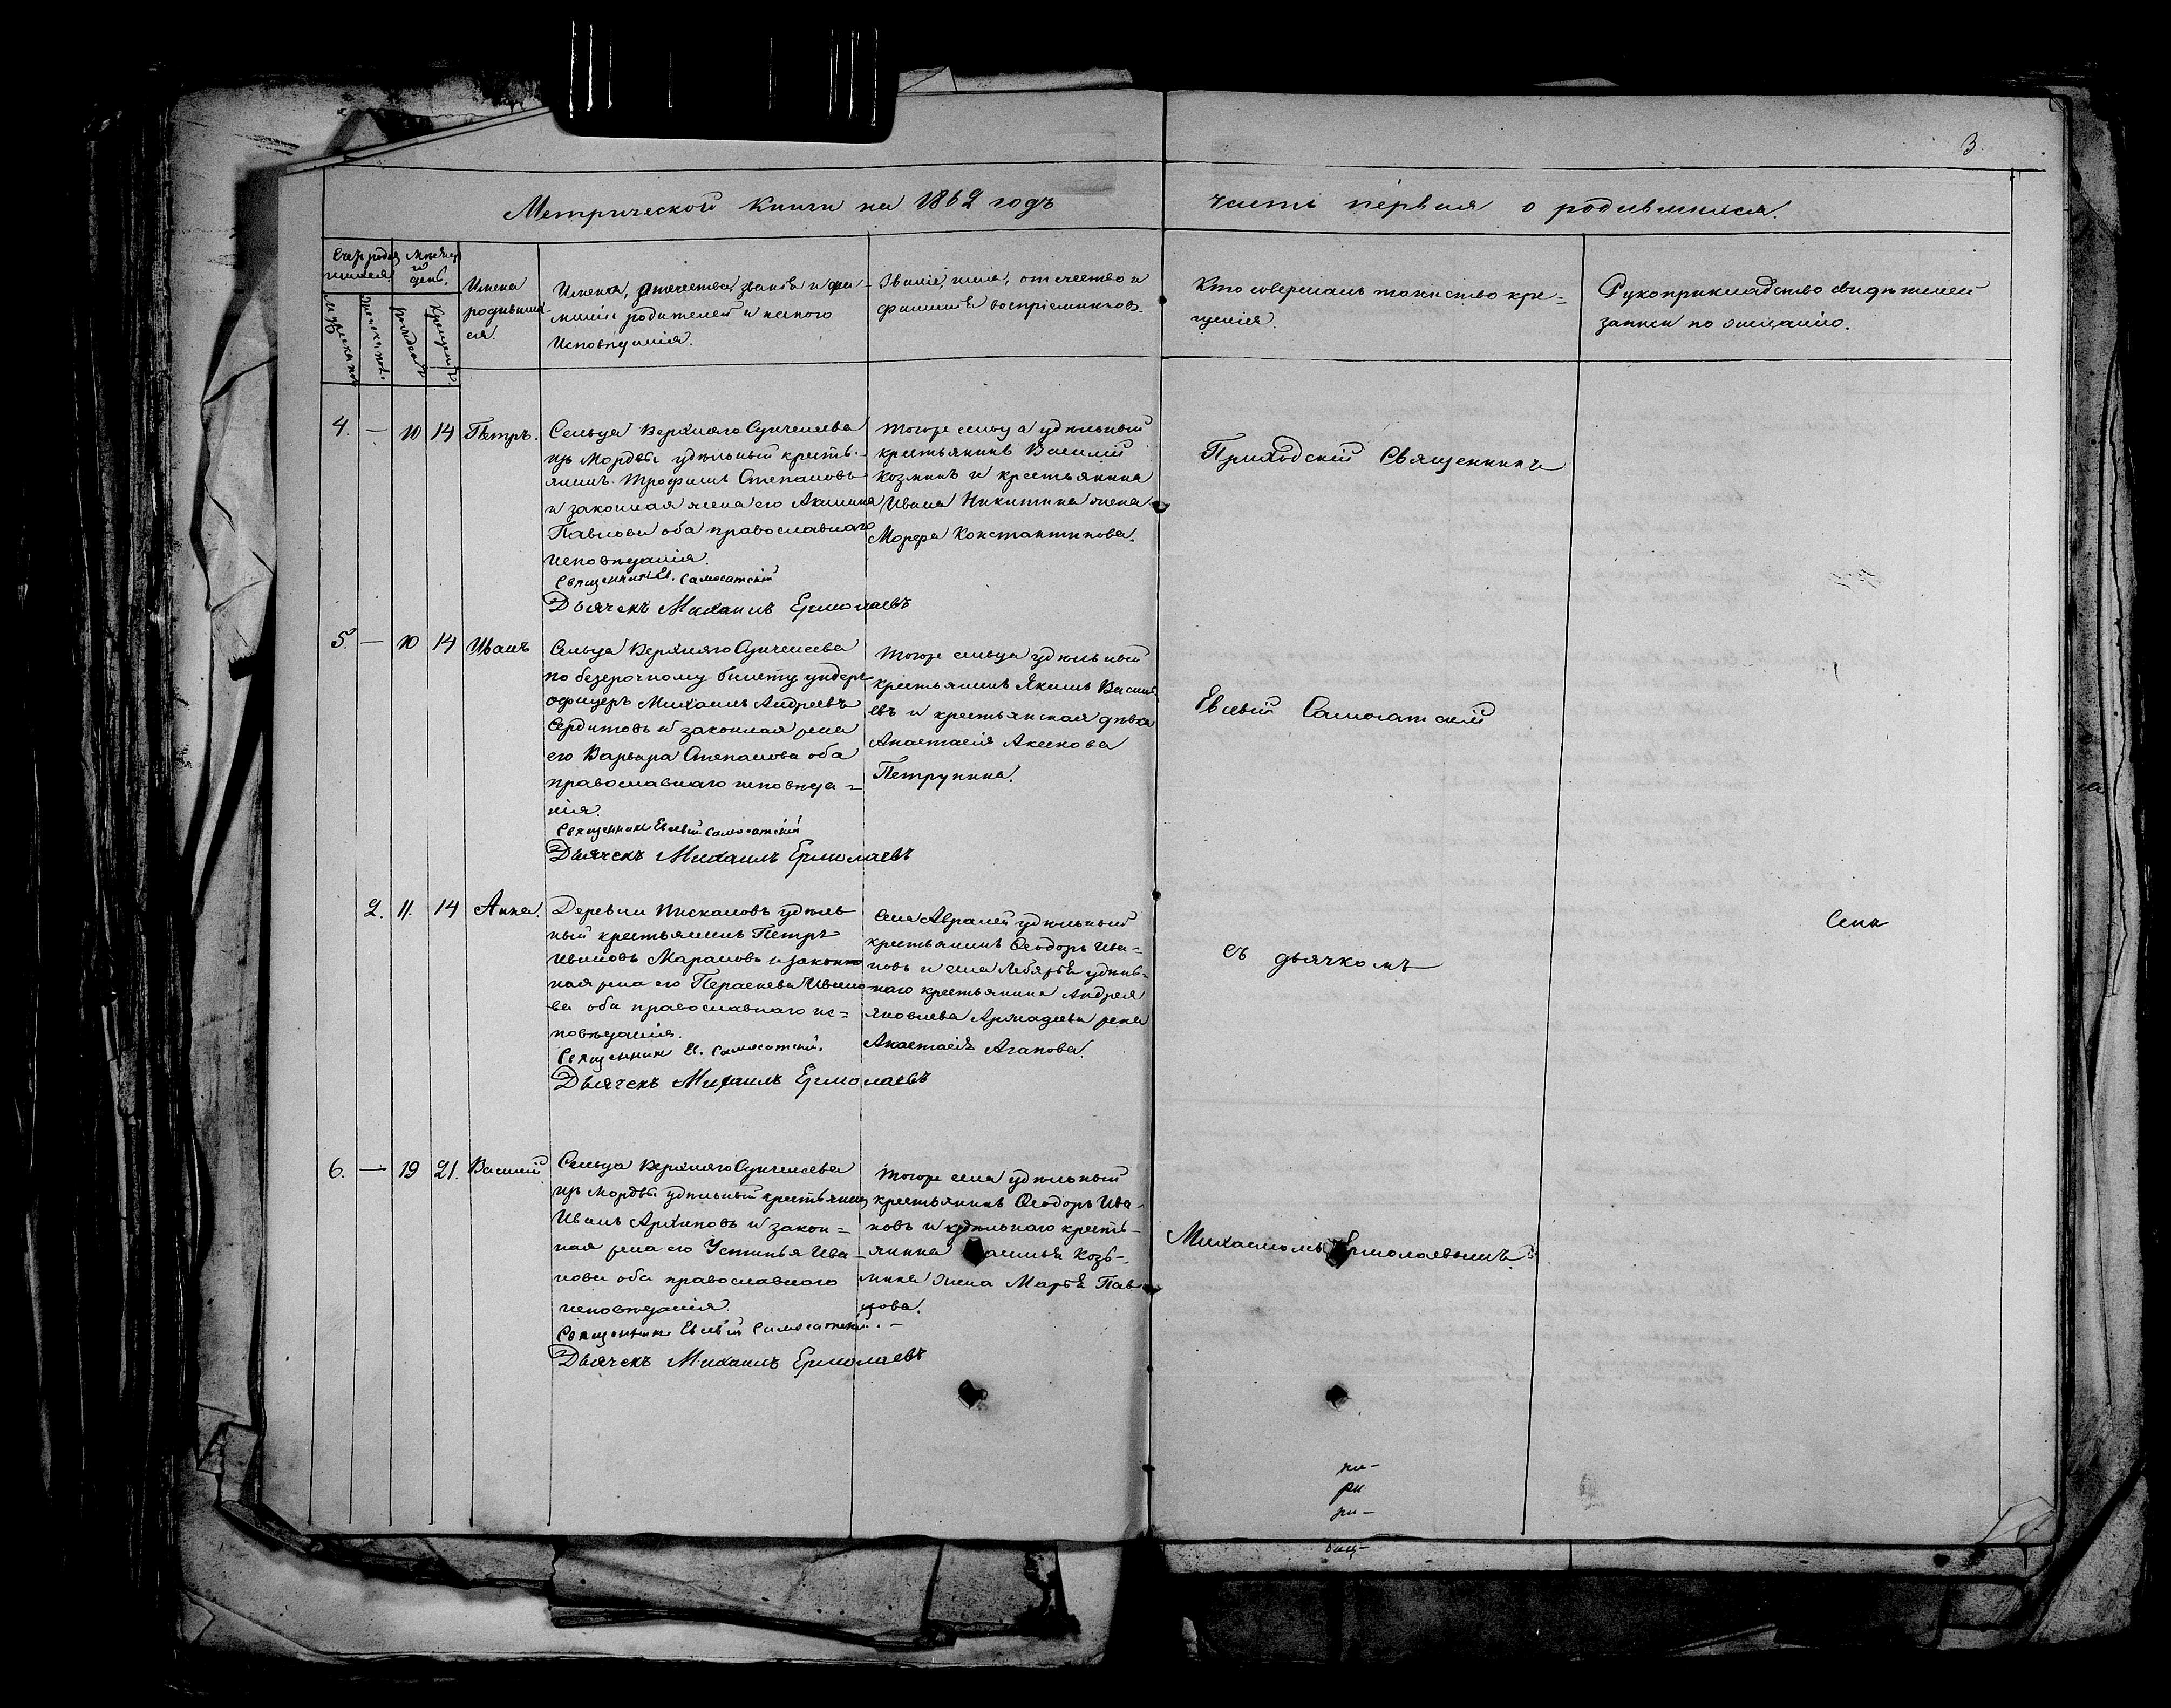 3.
Метрической книги на 1862 годъ
часть первая о родившихся.
Счетъ родив
шихся
Мѣсяцъ
и
день.
Мужеска пол
Женска пол.
рожденія
Крещенія.
Имена
родивших
ся.
Имена, отечества, званія и фа-
миліи родителей и какого
Исповѣданія.
Званіе, имя, отчество и
фамилія воспріемниковъ.
Кто совершалъ таинство кре=
щенія.
Рукоприкладство свидѣтелей
записи по желанію.
4. — 10 14 Петръ.
Сельца Верхняго Сунчелеева
изъ Мордвы удѣльный кресть-
янинъ Трофимъ Степановъ
и законная жена его Акилина
Павлова оба православнаго
исповѣданія.
Священникъ Ев. Самосатскій
Дьячекъ Михаилъ Ермолаевъ
Тогоже сельца удѣльный
крестьянинъ Василій
Козминъ и крестьянина
Ивана Никитина жена
Марфа Константинова.
5. — 10 14 Иванъ
Сельца Верхняго Сунчелеева
по безсрочному билету ундеръ
офицеръ Михаилъ Андреевъ
Сердитовъ и законная жена
его Варвара Степанова оба
православнаго исповѣда=
нія.
Священникъ Евсевій Самосатскій
Дьячекъ Михаилъ Ермолаевъ
Тогоже сельца удѣльный
крестьянинъ Якимъ Василь
евъ и крестьянская дѣвка
Анастасія Аксенова
Петрунина.
2. 11. 14 Анна.
Деревни Пискаловъ удѣль
ный крестьянинъ Петръ
Ивановъ Мараловъ и закон
ная жена его Параскева Ивано
ва оба православнаго ис=
повѣданія.
Священникъ Ев. Самосатскій.
Дьячекъ Михаилъ Ермолаевъ
Села Авралей удѣльный
крестьянинъ Ѳеодоръ Ива=
новъ и села Лебяжья удѣль=
наго крестьянина Андрея
Яковлева жена
Анастасія Агапова.
6. — 19 21. Василій
Сельца Верхняго Сунчелеева
изъ Мордвы удѣльный крестьянинъ
Иванъ Архиповъ и закон=
ная жена его Устинья Ива-
нова оба православнаго
исповѣданія.
Священникъ Евсевій Самосатскій. —
Дьячекъ Михаилъ Ермолаевъ
Тогоже села удѣльный
крестьянинъ Ѳеодоръ Ива-
новъ и удѣльнаго кресть-
янина Василья Козь-
мина жена Марья Пав
лова.
Приходскій Священникъ
Евсевій Самосатскій
съ дьячкомъ
Михаиломъ Ермолаевымъ.